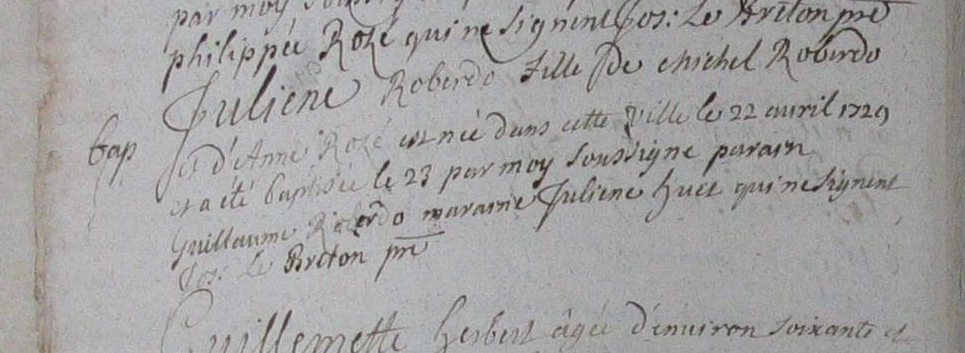 par moy
philippée Rozé qui ne signent Jos: Le Breton pre
Juliene Roberdo fille de Michel Roberdo
bap
et d'Anne Rozé est née dans cette Ville le 22 avril 1729
et a été baptisée le 23 par moy soussigne parain
Guillaume Roberdo maraine Juliene huet qui ne signent
Jos: Le Breton pre
Guillemette herbert âgée d'environ soixante et